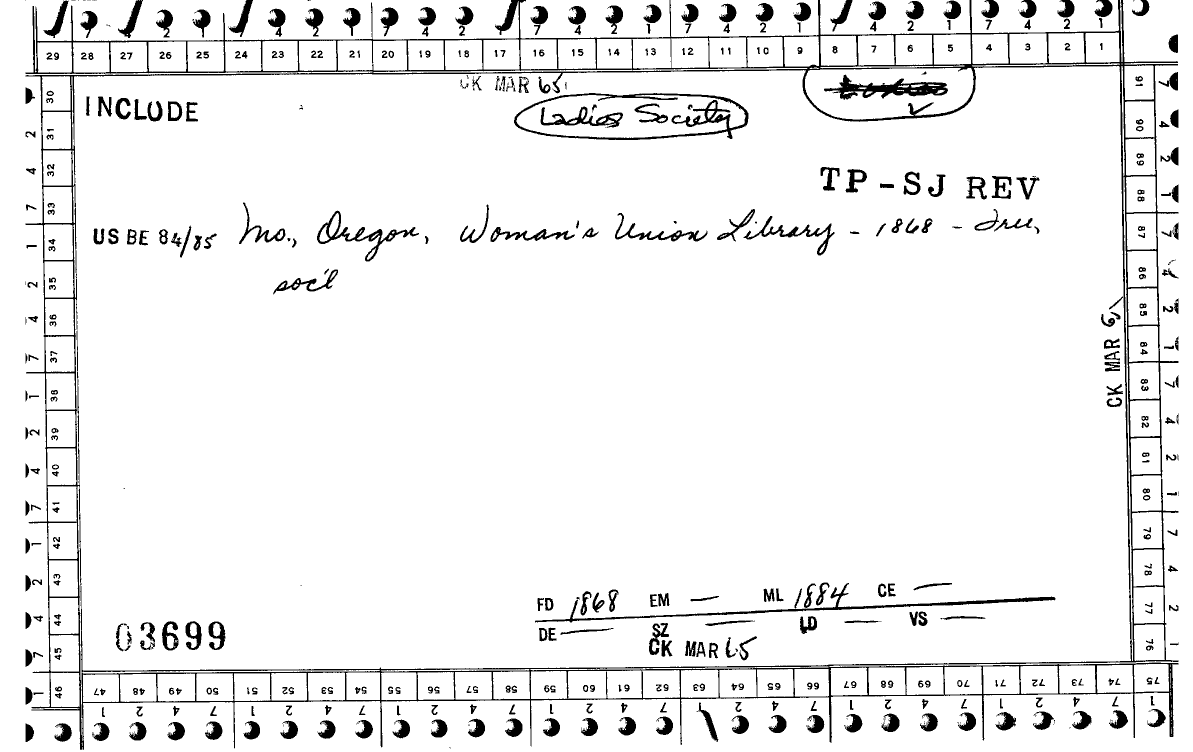 7 4 2 1 7 4 2 1 7 4 2 1 7 4 2 1 7 4 2 1
29 28 27 26 25 24 23 22 21 20 19 18 17 16 15 14 13 12 11 10 9 8 7 6 5 4 3 2 1
CK MAR 65
INCLUDE
Ladies Society
TP-SJ REV
US BE 84/85 Mo., Oregon, Woman's Union Library - 1868 - Free,
soc'l
CK MAR 6
FD 1868 EM — ML 1884 CE —
DE — SZ — LD — VS —
CK MAR 65
03699
30 31 32 33 34 35 36 37 38 39 40 41 42 43 44 45 46
2 4 7 1 2 4 7 1 2 4 7 1 2 4 7 1
91 90 89 88 87 86 85 84 83 82 81 80 79 78 77 76
47 48 49 50 51 52 53 54 55 56 57 58 59 60 61 62 63 64 65 66 67 68 69 70 71 72 73 74 75
1 2 4 7 1 2 4 7 1 2 4 7 1 2 4 7 1 2 4 7 1 2 4 7 1 2 4 7 1